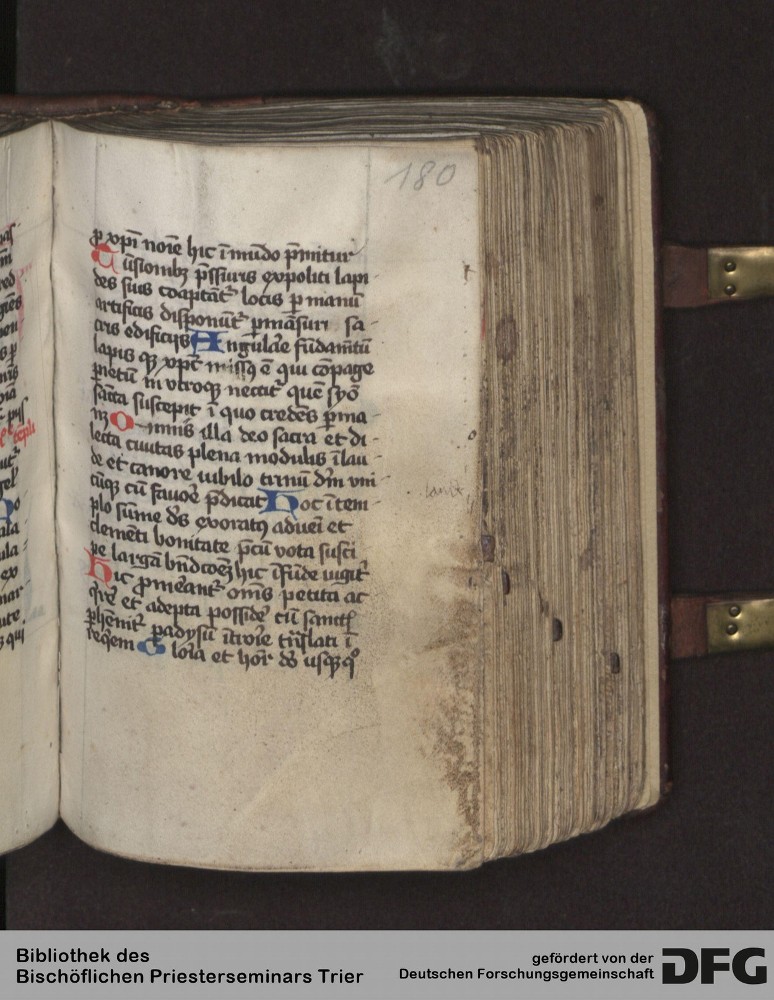 180
p xpi noīe hic ī mūdo p̄mitur
Tūsionibꝫ p̄ssuris expoliti lapi
des suis coaptāt᷑ locis p manū
artificis disponūt᷑ pmāsuri sa
cris edificijs Angulāe fūdam̄tū
lapis qꝫ xpc̄ missꝯ ē qui cōpage
pietū in vtroqꝫ nectit᷑ quē syō
sāta suscepit ī quo credēs pma
nꝫ Omnis illa deo sacra et di
lecta ciuitas plena modulis ī lau
de et canore iubilo trinū dm̄ vni
cūqꝫ cū fauore p̄dicat Hoc ī tem
plo sūme ds̄ exoratꝯ adueī et
clemēti bonitate p̄cū vota susci
pe largā bn̄dcōeꝫ hic īfūde iugit᷑
Hic pmeāt᷑ om̄s petita ac
qꝛ̄e et adepta possidē cū sanctꝭ
phēnit᷑ padysū ītroīe trāslati ī
reqem Gloīa et hoꝛ ds̄ usqꝫqͦ
Bibliothek des
Bischöflichen Priesterseminars Trier
gefördert von der
Deutschen Forschungsgemeinschaft
DFG